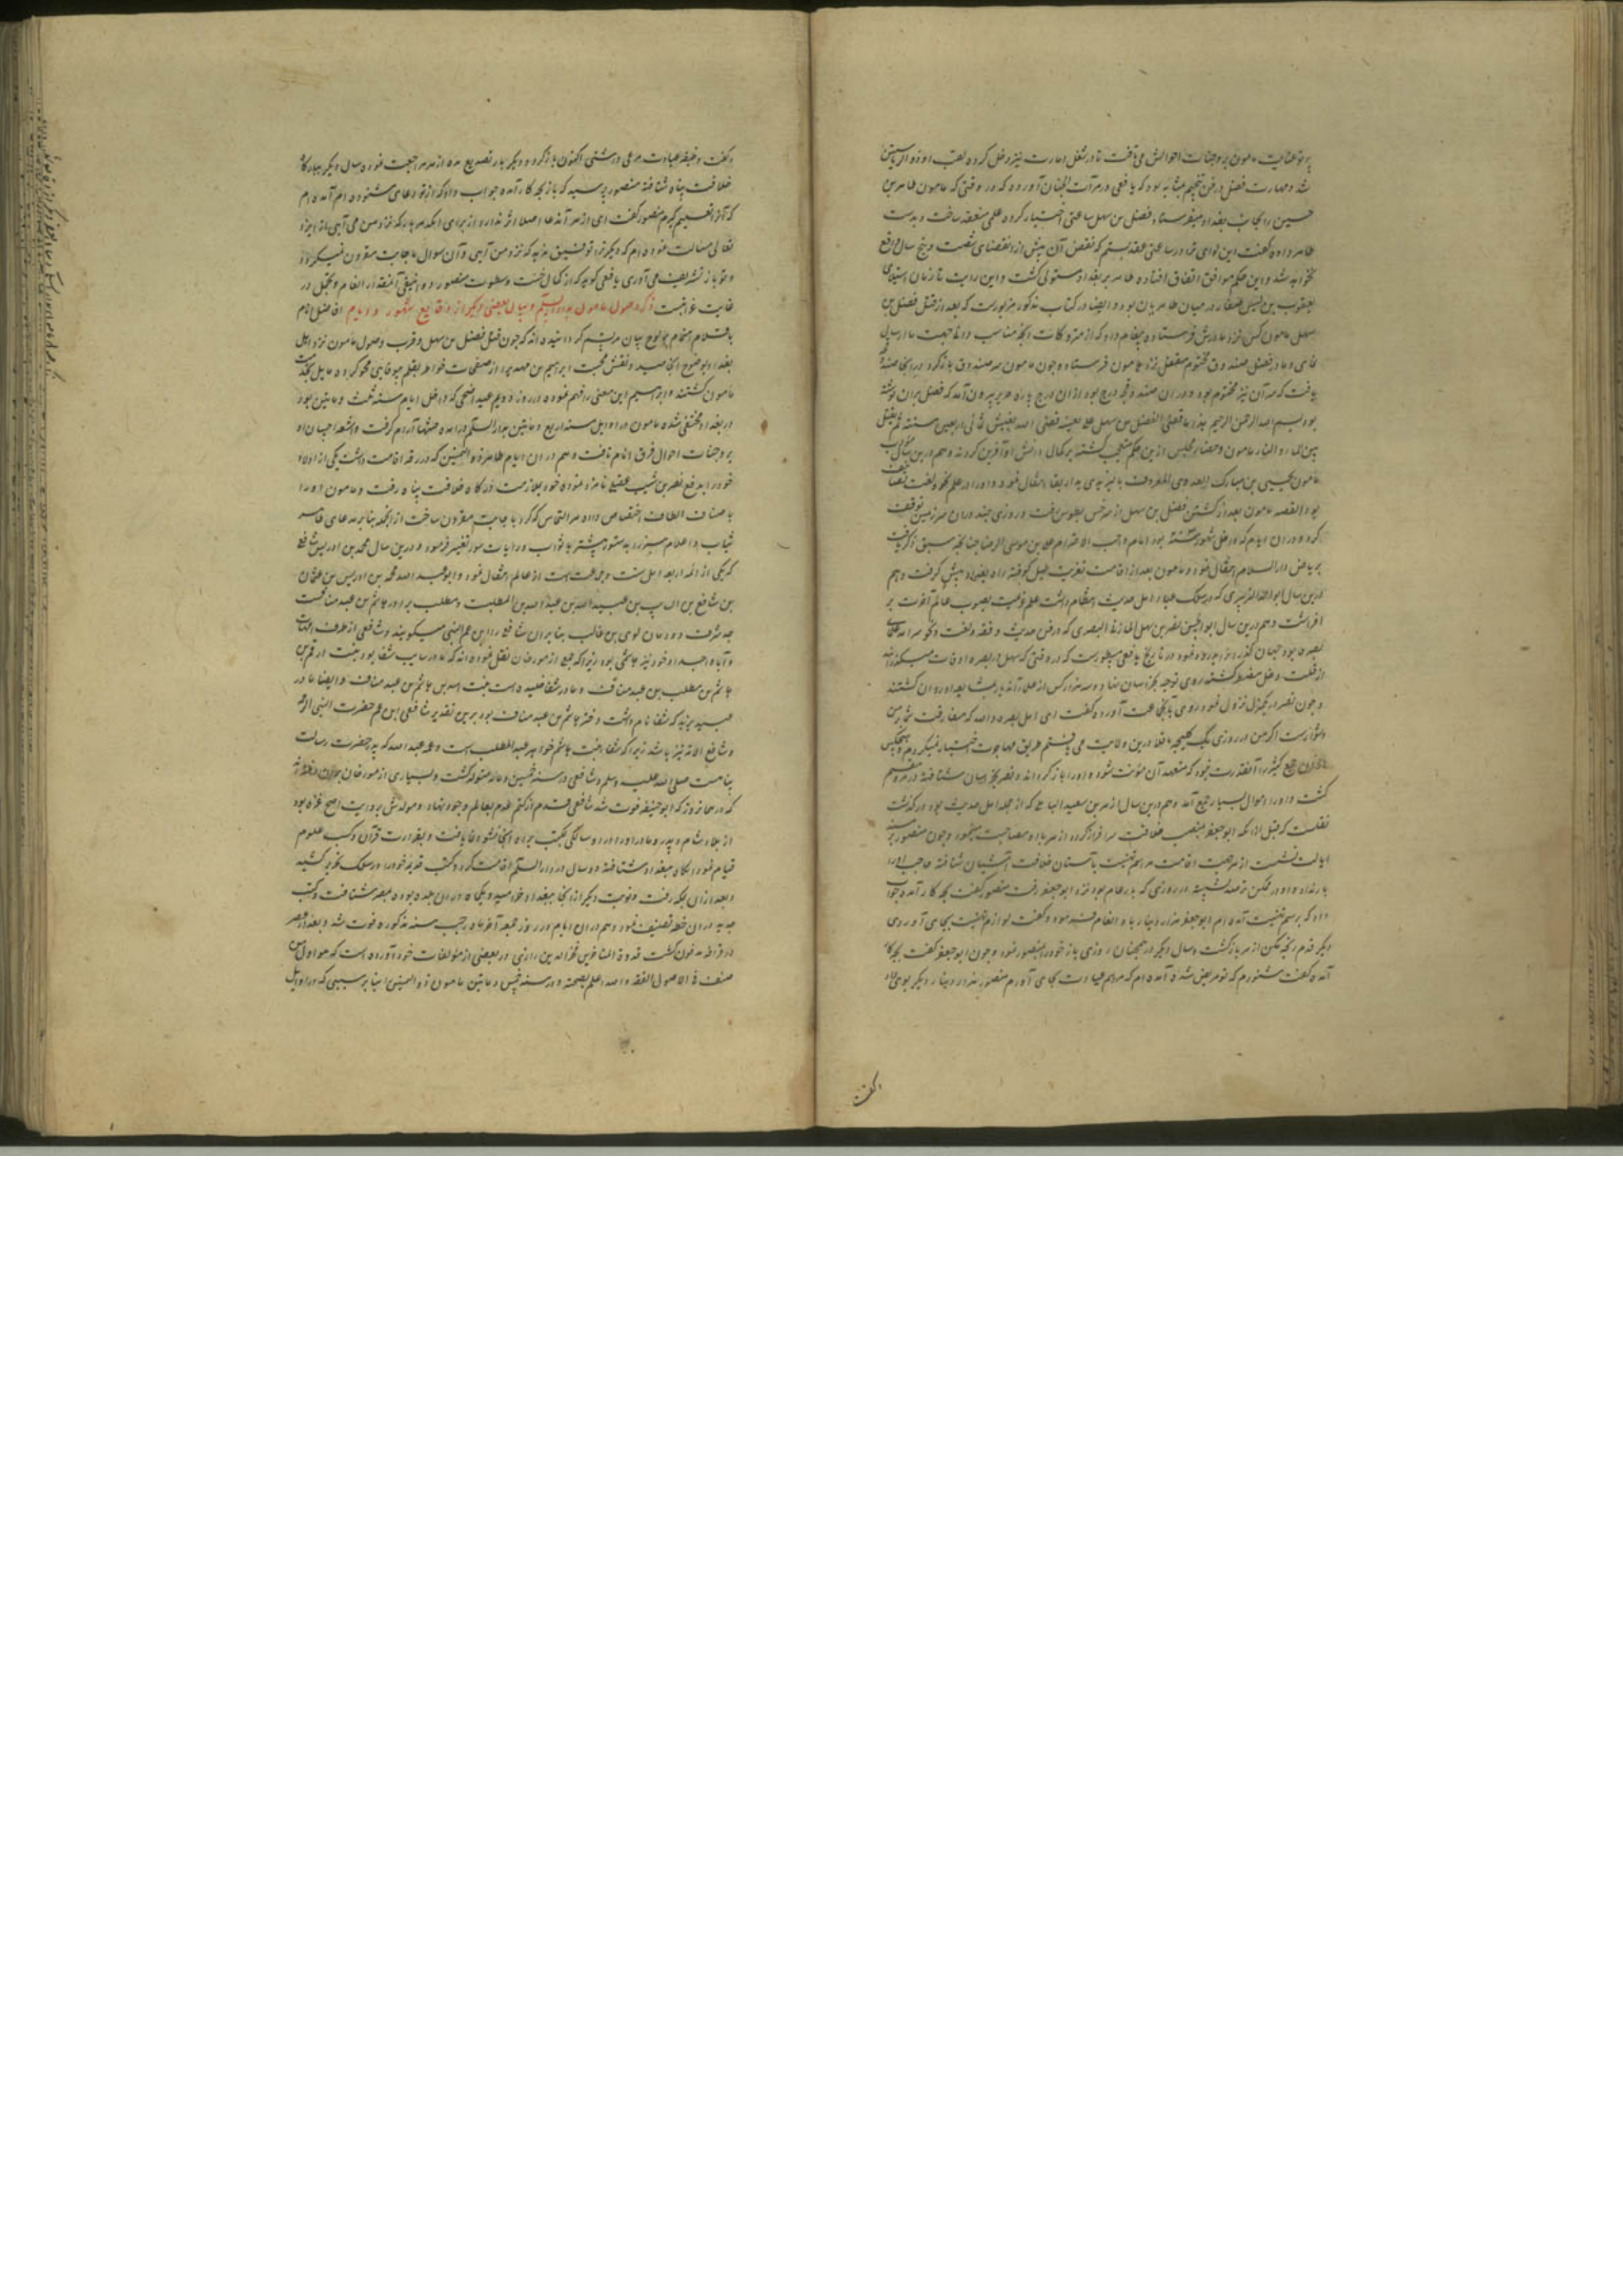 پرتو عنایت مامون بر وجنات احوالش می یافت تا در شغل امارت نیز دخل کرده بلقب او ذو الریاستین
شد و مهارت فضل در فن تنجیم بمثابه بود که یافعی در مرآت الجنان آورده که در وقتی که مامون طاهر بن
حسین را بجانب بغداد میفرستاد فضل بن سهل ساعتی اختیار کرده علمی منعقد ساخت و بدست
طاهر داده گفت این لوای ترا در ساعتی عقد بستم که نقض آن پیش از انقضای شصت و پنج سال واقع
نخواهد شد و این حکم موافق اتفاق افتاده طاهر بر بغداد مستولی گشت و این رایت تا زمان استیلای
یعقوب بن لیث صفار در میان طاهریان بود و ایضا در کتاب مذکور مزبورست که بعد از قتل فضل بن
سهل مامون کس نزد مادرش فرستاده پیغام داد که از متروکات آنچه مناسب دانا جهت ما ارسال
نمای و مادر فضل صندوقی مختوم مقفل نزد مامون فرستاده چون مامون سر صندوق باز کرد در آنجا صندوقچه
یافت که سر آن نیز مختوم بود و در ان صندوقچه درج بود از ان درج پاره حریر بیرون آمد که فضل بران نوشته
بود بسم الله الرحمن الرحیم هذا ما قضی الفضل بن سهل علی نفسه قضی انه یعیش ثمانی و اربعین سنة ثم یقتل
بین الماء و النار مامون و حضار مجلس ازین حکم متعجب گشته بر کمال دانش او آفرین کردند و هم درین سال
مامون یحیی بن مبارک العدوی المعروف با یزیدی بدار بقا انتقال نمود و او را در علم نحو و لغت تصانیف
بود القصه مامون بعد از کشتن فضل بن سهل از سرخس بطوس رفت و روزی چند دران سرزمین توقف
کرده و در ان ایام که داخل شهور سنه بود امام واجب الاحترام علی بن موسی الرضا چنانچه سبق ذکر یافت
بریاض دارالسلام انتقال نمود و مامون بعد از اقامت تعزیت طبل کوفته راه بغداد پیش گرفت و هم
درین سال ابو که در سلک علماء اهل حدیث انتظام داشت علم عزیمت بصوب عالم آخرت بر
افراشت و هم درین سال ابو الحسن نضر بن شمیل المازنی البصری که در فن حدیث و فقه و لغت و نحو سرآمد علمای
بصره بود جهان گذران را بدرود نمود در تاریخ یافعی مسطورست که در وقتی که سهل در بصره اوقات میگذرانید
از قلت دخل مضطر گشته روی توجه بخراسان نهاد و سه هزار کس از علماء آنجا بمشایعه او روان گشتند
و چون نضر از منزل نزول نمود روی با جماعت آورده گفت ای اهل بصره والله که مفارقت شما بر من
دشوارست اگر من در روزی یک کلیچه باقلا درین ولایت می یافتم طریق مهاجرت اختیار نمیکردم و هیچکس
ازان جمع کثیر را آنقدر قدرت نبود که متعهد آن مؤنت شود و او را باز گرداند و نضر بخراسان شتافته در مرو مقیم
گشت و او را اموال بسیار جمع آمد و هم درین سال ازهر بن سعید السمان که از جمله اهل حدیث بود درگذشت
نقلست که قبل از انکه ابو جعفر بمنصب خلافت سرافراز گردد ازهر با او مصاحبت مینمود و چون منصور بر مسند
ایالت نشست ازهر جهت اقامت مراسم تهنیت بآستان خلافت آشیان شتافته حاجب او را
بار نداد و او در ممکن ترصد نشسته در روزی که بار عام بود نزد ابو جعفر رفت منصور گفت بچه کار آمده جواب
داد که برسم تهنیت آمده ام ابو جعفر هزار دینار باو انعام فرموده و گفت لوازم تهنیت بجای آوردی
دیگر قدم رنجه مکن ازهر بازگشت و سال دیگر در همچنان روزی باز خود را بمنصور نمود و چون ابو جعفر گفت بچه کار
آمده گفت شنودم که تو مریض شده آمده ام که مراسم عیادت بجای آورم منصور هزار دینار دیگر بوی داد
و گفت
و گفت وظیفه عیادت مرعی داشتی اکنون باز گرد و دیگر بار تصدیع مده ازهر مراجعت نموده سال دیگر ببارگاه
خلافت پناه شتافته منصور پرسید که باز بچه کار آمده جواب داد که از تو دعای شنوده ام آمده ام
که آنرا تعلیم گیرم منصور گفت ای ازهر آن دعا اصلا اثر ندارد از برای آنکه هر بار که نزد من می آیی باز ایزد
تعالی مسالت نموده ام که دیگر ترا توفیق ندهد که نزد من آیی و آن سوال باجابت مقرون نمیگردد
و تو باز تشریف می آوری یافعی گوید که از کمال خست و سطوت منصور دوانیقی آنمقدار انعام و تحمل در
غایت غرابتست ذکر وصول مامون بدار السلام و بیان بعضی دیگر از وقایع شهور و ایام افاضل انام
باقلام اهتمام بر لوح بیان مرقوم گردانیده اند که چون قتل فضل بن سهل و قرب وصول مامون نزد اهل
بغداد بوضوح انجامید نقش محبت ابراهیم بن مهدی را از صفحات خواطر بقلم بیوفایی محو کرده مایل بخدمت
مامون گشتند و ابراهیم این معنی را فهم نموده در روز دویم عید اضحی که داخل ایام سنه ثلث و مایتین بود
در بغداد مختفی شده مامون در اوایل سنه اربع و مایتین بدار السلم درآمده ضبطها آرام گرفت و اشعه احسان او
بر وجنات احوال فرق انام تافت و هم در ان ایام طاهر ذوالیمینین که در رقه اقامت داشت یکی از اولاد
خود را بدفع نصر بن شبیب عقیلی نامزد نموده خود بملازمت درگاه خلافت پناه رفت و مامون او را
باصناف الطاف اختصاص داده هر التماس که کرد باجابت مقرون ساخت از انجمله بنا بر مدعای طاهر
ثیاب و اعلام سبز را بدستور پیشتر باثواب و رایات سود تغییر فرمود و درین سال محمد بن ادریس شافعی
که یکی از ائمه اربعه اهل سنت و جماعت است از عالم انتقال نمود و ابو عبد الله محمد بن ادریس بن عثمان
بن شافع بن السایب بن عبید الله بن عبد الله بن المطلبست و مطلب برادر هاشم بن عبد مناف است
جد شرف دودمان لوی بن غالب بنا بران شافعی را ابن عم النبی میگویند و شافعی از طرف امهات
و آباء اجداد خود نیز هاشمی بود زیرا که جمع از مورخان نقل نموده اند که مادر سایب شفا بود بنت ارقم بن
هاشم بن مطلب بن عبد مناف و مادر شفا خلیده است بنت اسد بن هاشم بن عبد مناف و ایضا مادر
عبید یزید که شفا نام داشت دختر هاشم بن عبد مناف بود برین تقدیر شافعی ابن عم حضرت النبی ام
و شافع الامه نیز باشد زیرا که شفا بنت هاشم خواهر عبد المطلب است و عمه عبد الله که پدر حضرت رسالت
پناهست صلی الله علیه وسلم و شافعی در سنه خمسین و مایه متولد گشت و بسیاری از مورخان بران رفته اند
که در همانروز که ابو حنیفه فوت شد شافعی قدم از کتم عدم بعالم وجود نهاد و مولدش بروایت اصح غزه بود
از بلاد شام و پدر و مادر او را در دو سالگی بمکه برده آنجا نشو و نما یافت و بقرائت قرآن و کسب علوم
قیام نمود آنگاه ببغداد شتافته دو سال در دار السلم اقامت کرد و کتب قدیمه خود را در سلک تحریر کشید
و بعد از ان بمکه رفت و نوبت دیگر از آنجا ببغداد خرامیده یکماه در ان بلده بوده بمصر شتافت و کتب
جدیده در ان خطه تصنیف نمود و هم در ان ایام در روز جمعه آخر ماه رجب سنه مذکوره فوت شد و بعد از عصر
در قرافه مدفون گشت قدوة المتاخرین فخر الدین رازی در بعضی از مؤلفات خود آورده است که هو اول من
صنف فی الاصول الفقه و الله اعلم بصحته و در سنه خمس و مایتین مامون ذو الیمینین را بنا بر سببی که در اوایل